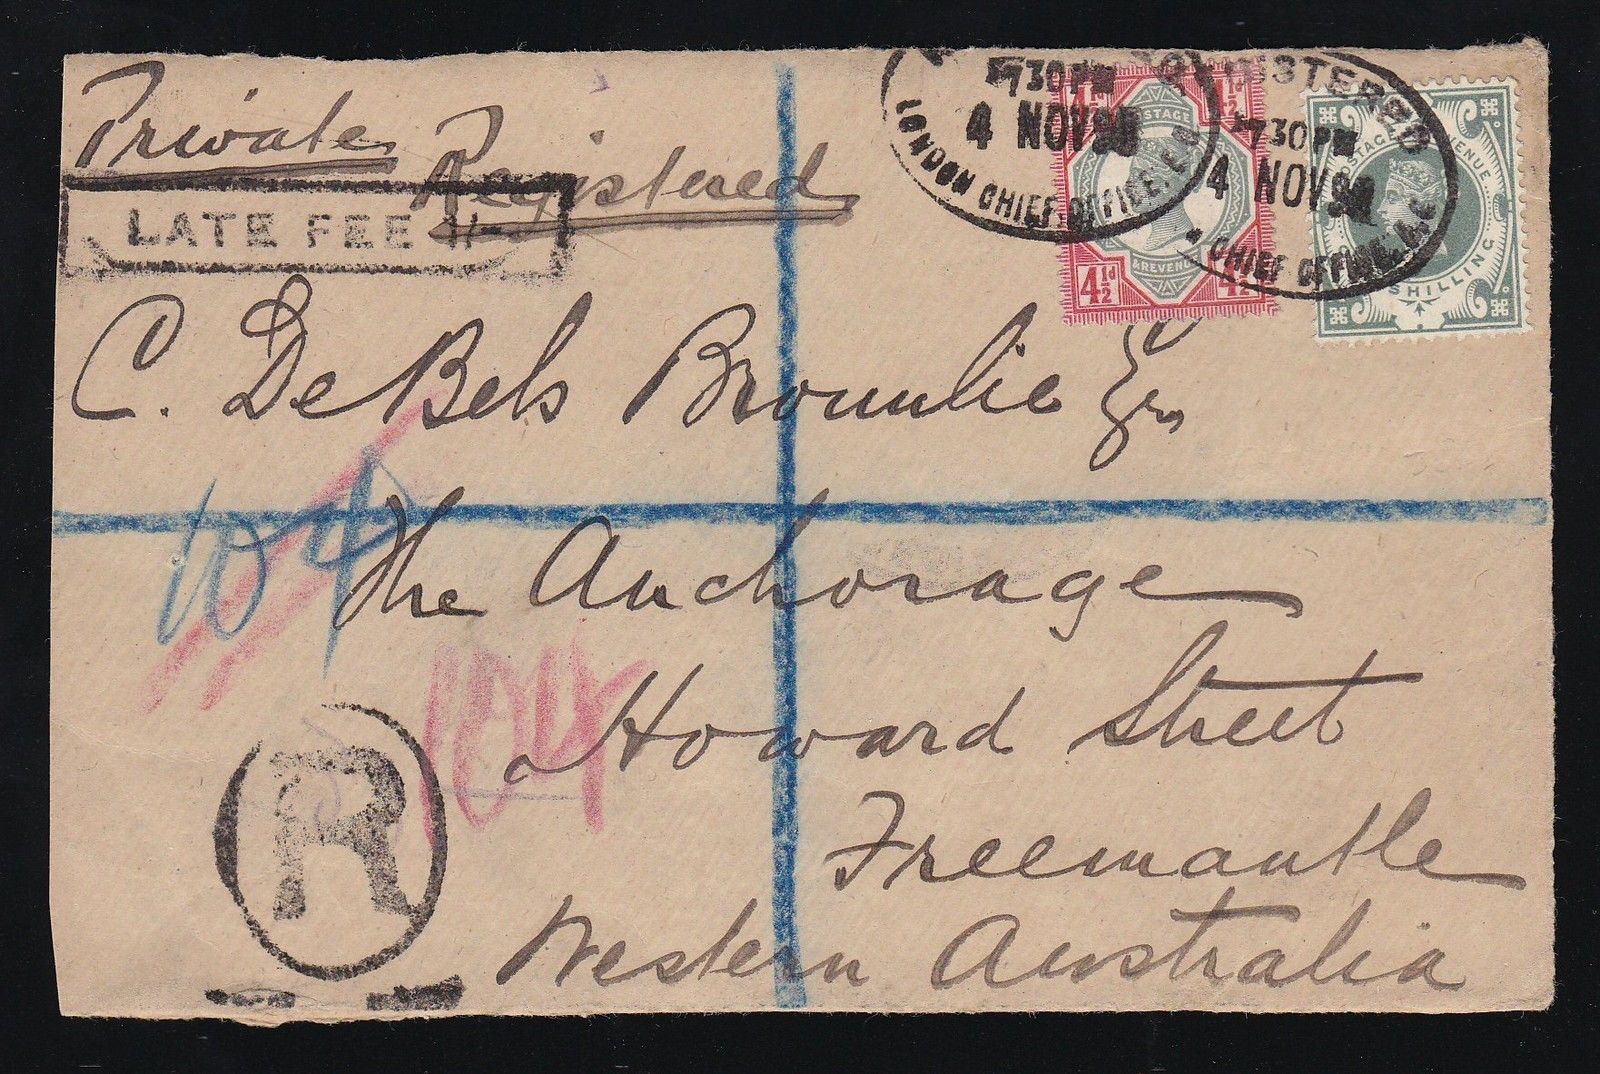 Private
Registered
LATE FEE 1/-
730PM
4 NOV 98
LONDON CHIEF OFFICE. E.C
REGISTERED
730PM
4 NOV 98
CHIEF OFFICE. E.C
4½d
POSTAGE
& REVENUE
4½ 4½
POSTAGE & REVENUE
SHILLING
C. DeBels Brownlie Esq
The Anchorage
Howard Street
Freemantle
Western Australia
R